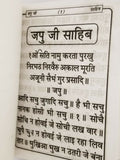 जपु जी
(१)
साहिब
जपु जी साहिब
१ओं सति नामु करता पुरखु
निरभउ निरवैरु अकाल मूरति
अजूनी सैभं गुर प्रसादि ॥
॥ जपु ॥
आदि सचु जुगादि सचु ॥ है भी सचु
सोचि न होवई जे सोची लख वार ॥
चुपै चुप न होवई जे लाइ रहा
भुखिआ भुख न उतरी जे बंना